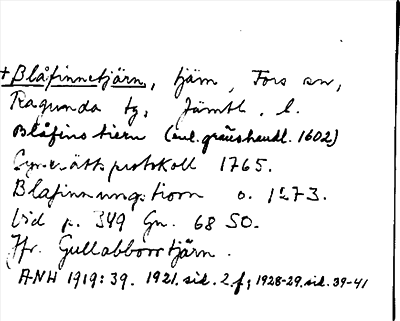 + Blåfinnetjärn, tjärn, Fors sn,
Ragunda tg, Jämtl. l.
Blåfins tiern (enl. gränshandl. 1602)
protokoll 1765.
Blafinnung. tiorn o. 1273.
Vid p. 349 Gn. 68 SO.
Jfr. Gullabborrtjärn.
ANH 1919:39. 1921. sid. 2 f; 1928-29. sid. 39-41